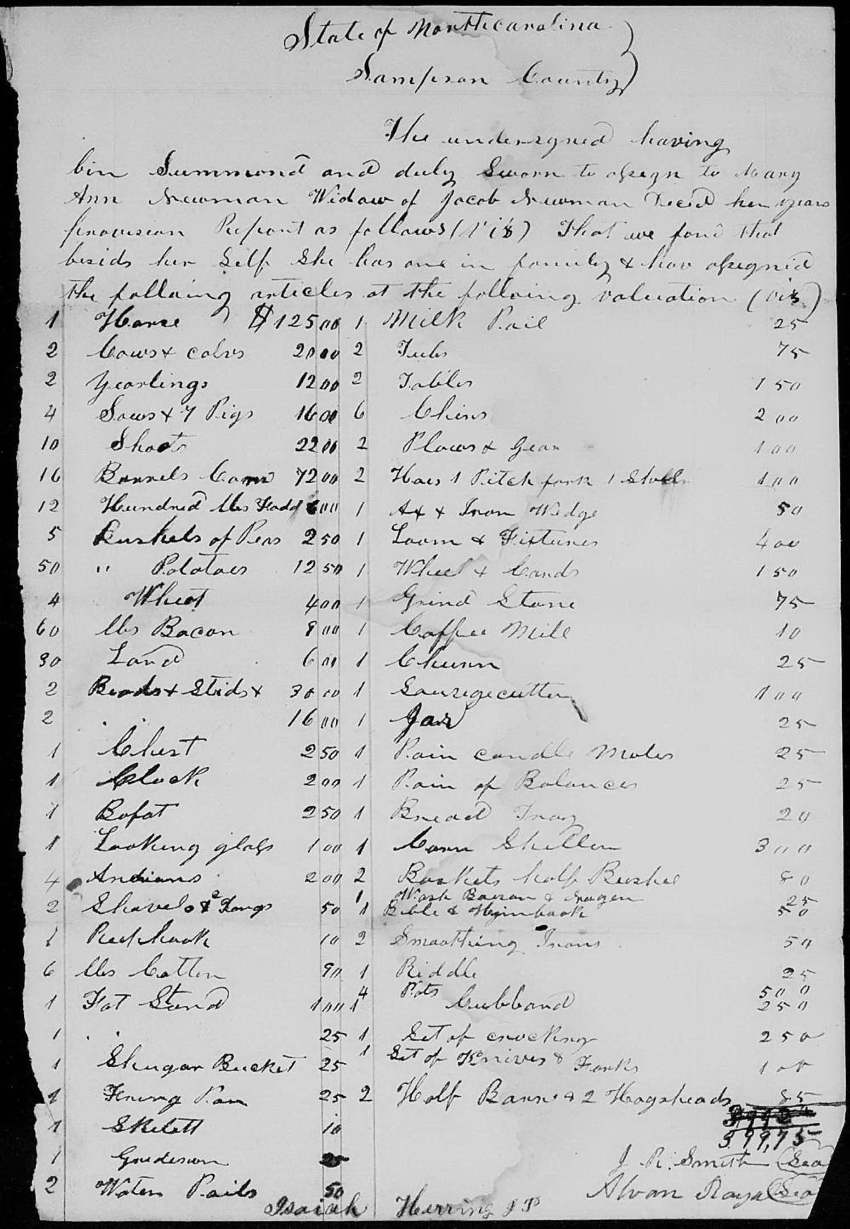 State of Northcarolina
Sampson County
The undersigned having
bin Summond and duly Sworn to assign to Mary
Ann Newman Widow of Jacob Newman Deced her years
provision Report as follows (Viz) That we find that
besids her Self She has one in family & hav assignid
the following articles at the following valuation (viz)
1 Horse $125 00
2 Cows & calvs 20 00
2 Yearlings 12 00
4 Sows & 7 Pigs 16 00
10 Shoats 22 00
16 Barrels Corn 72 00
12 Hundred lbs Fodd 6 00
5 Bushels of Peas 2 50
50 " Potatoes 12 50
4 Wheat 4 00
60 lbs Bacon 9 00
30 Lard 6 00
2 Beads & Stids & 30 00
2 " " 16 00
1 Chest 2 50
1 Clock 2 00
1 Bofat 2 50
1 Looking glass 1 00
4 Andians 2 00
2 Shovels & 2 Tongs 50
1 Reephook 10
6 lbs Cotten 90
1 Fat Stand 1 00
1 " 25
1 Shugar Bucket 25
1 Frying Pan 25
1 Skilett 10
1 25
2 Water Pails 50
1 Milk Pail 25
2 Tubs 75
2 Tables 1 50
6 Chirs 2 00
2 Plows & Gear 1 00
2 Hoes 1 Pitch fork 1 1 00
1 Ax & Iron Widge 50
1 Loom & Fixtures 4 00
1 Wheel & Cards 1 50
1 Grind Stone 75
1 Coffee Mill 10
1 Churn 25
1 Sausegecutter 1 00
1 Jar 25
1 Pair candle Moles 25
1 Pair of Balances 25
1 Bread Tray 20
1 Corn Sheller 3 00
2 Baskets half Bushel 80
1 Wash Bason & 25
1 Bible & Hymbook 50
2 Smoothing Irons 50
1 Riddle 25
4 Pots 5 00
1 Cubbard 2 50
1 Set of crocking 2 50
1 Set of Knives & Forks 1 00
2 Half Barrel & 2 Hogsheads 85
399,75
J. R. Smith (Sea
Alvan Royal (Sea
Isaiah Herring J P